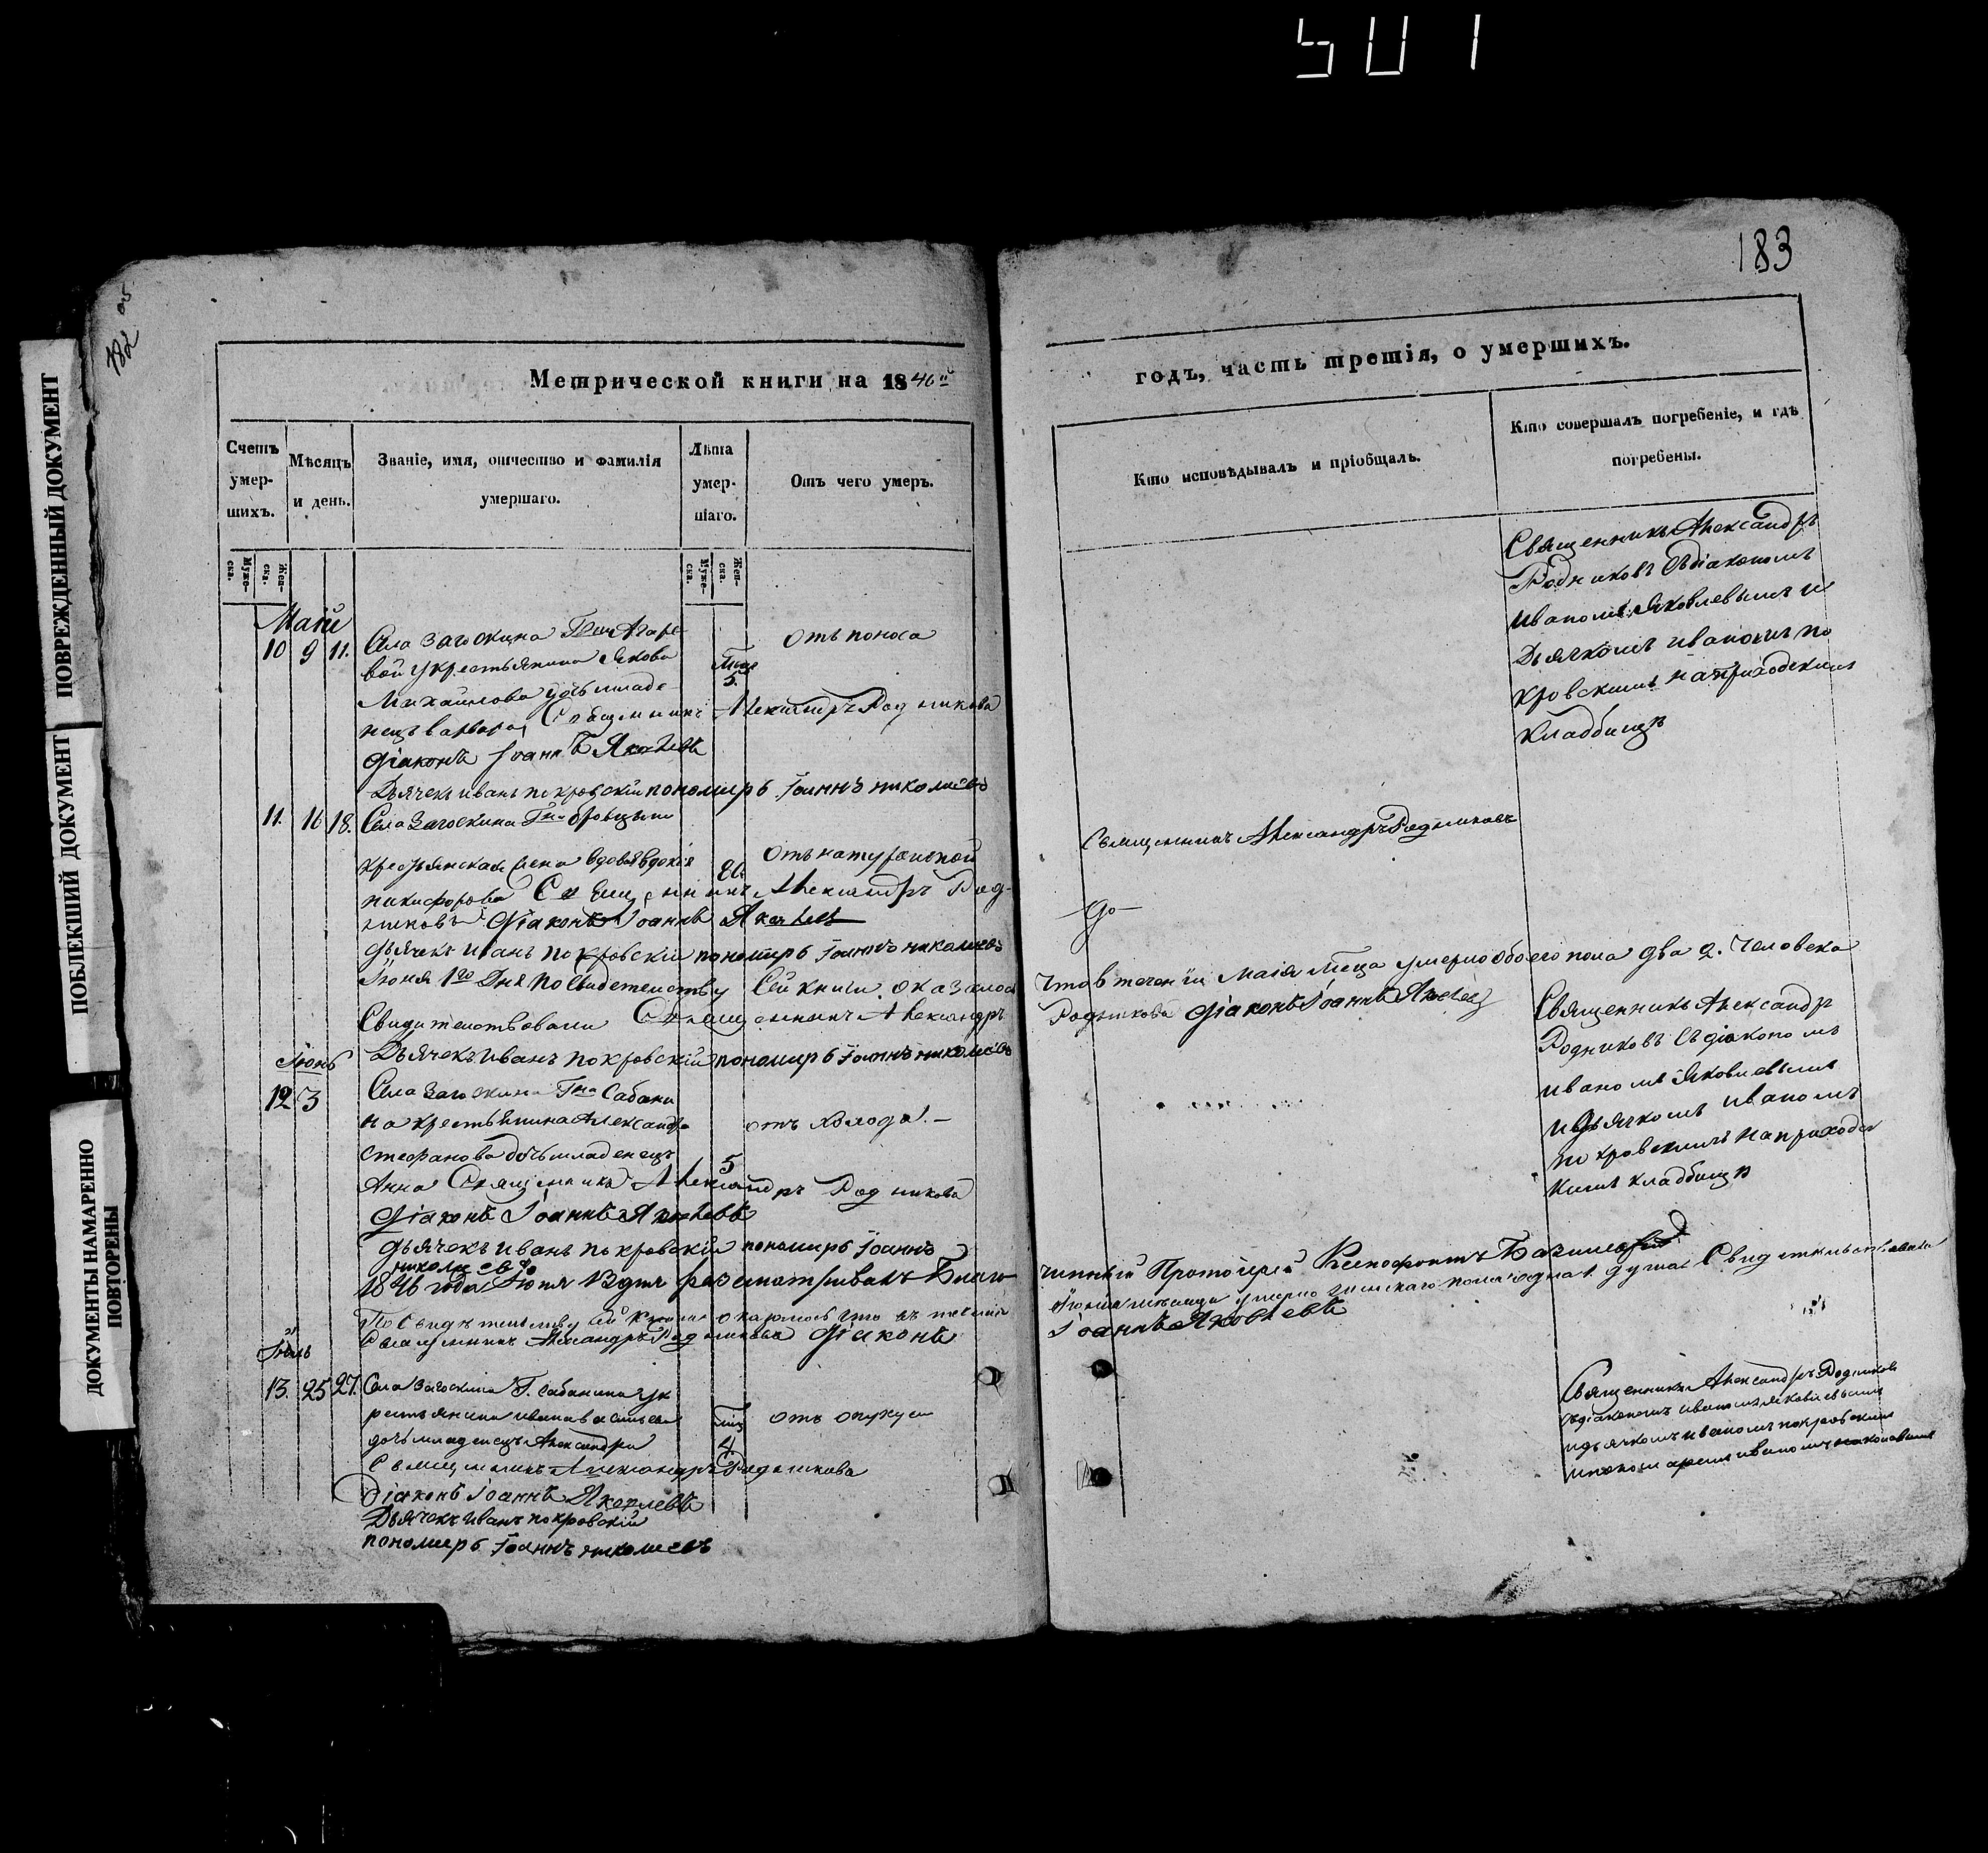 501
183
182
ПОВРЕЖДЕННЫЙ ДОКУМЕНТ
ПОБЛЕКШИЙ ДОКУМЕНТ
ДОКУМЕНТЫ НАМАРЕННО
ПОВТОРЕНЫ
Метрической книги на 1846й
Счетъ умер-шихъ.
Мѣсяцъ и день.
Званіе, имя, отчество и фамилія умершаго.
Лѣта умер-шаго.
Отъ чего умеръ.
Муже-ска.
Жен-ска.
Муже-ска.
Жен-ска.
Маій
10 9 11. Села Загоскина
вой у крестьянина Якова отъ поноса
Михайлова дочь младе- 5.
нецъ варвара, Священникъ Александръ Родниковъ
Діаконъ Іоаннъ Яковлевъ
Дьячекъ иванъ покровскій пономарь Іоаннъ николаевъ
11. 16 18. Села Загоскина
крестьянская жена вдова Евдокія отъ натуральной
никифорова Священникъ Александръ Род-
никовъ Діаконъ Іоаннъ Яковлевъ
дьячекъ иванъ покровскій пономарь Іоаннъ николаевъ
Іюня 1го Дня по Свидетельству Сей книги оказалось
Свидетельствовали Священникъ Александръ
Дьячекъ иванъ покровскій пономарь Іоаннъ николаевъ
Іюнь
12 3 Села Загоскина Гна Сабани
на крестьянина Александра отъ холода.
стефанова дочь младенецъ 5
Анна Священникъ Александръ Родниковъ
Діаконъ Іоаннъ Яковлевъ
дьячекъ иванъ покровскій пономарь Іоаннъ
николаевъ
1846 года Іюня 13 дня разсматривалъ Благо
По Свидѣтельству сей книги оказалось что въ теченіи
Священникъ Александръ Родниковъ Діаконъ
Іюль
13. 25 27. Села Загоскина Г. Сабанина у к
рестьянина ивана васильева отъ опухли
дочь младенецъ Александра 4
Священникъ Александръ Родниковъ
Діаконъ Іоаннъ Яковлевъ
Дьячекъ иванъ покровскій
пономарь Іоаннъ николаевъ
годъ, часть третія, о умершихъ.
Кто исповѣдывалъ и пріобщалъ.
Кто совершалъ погребеніе, и гдѣ погребены.
Священникъ Александръ
Родниковъ съ діакономъ
иваномъ Яковлевымъ и
Дьячкомъ иваномъ по
кровскимъ на приходскомъ
кладбищѣ
Священникъ Александръ Родниковъ
что в теченіи маія умерло обоего пола два 2. человека
Родниковъ Діаконъ Іоаннъ Яковлевъ
Священникъ Александръ
Родниковъ съ діакономъ
иваномъ Яковлевымъ
и дьячкомъ иваномъ
покровскимъ на приходс
комъ кладбищѣ
чинный Протоіерей Ксенофонтъ
Іюня месяца умерло женскаго пола одна 1. душа Свидетельствовали
Іоаннъ Яковлевъ
Священникъ Александръ Родников
съ діакономъ иваномъ яковлевымъ
и дьячкомъ иваномъ покровскимъ
и пономаремъ иваномъ николаевымъ